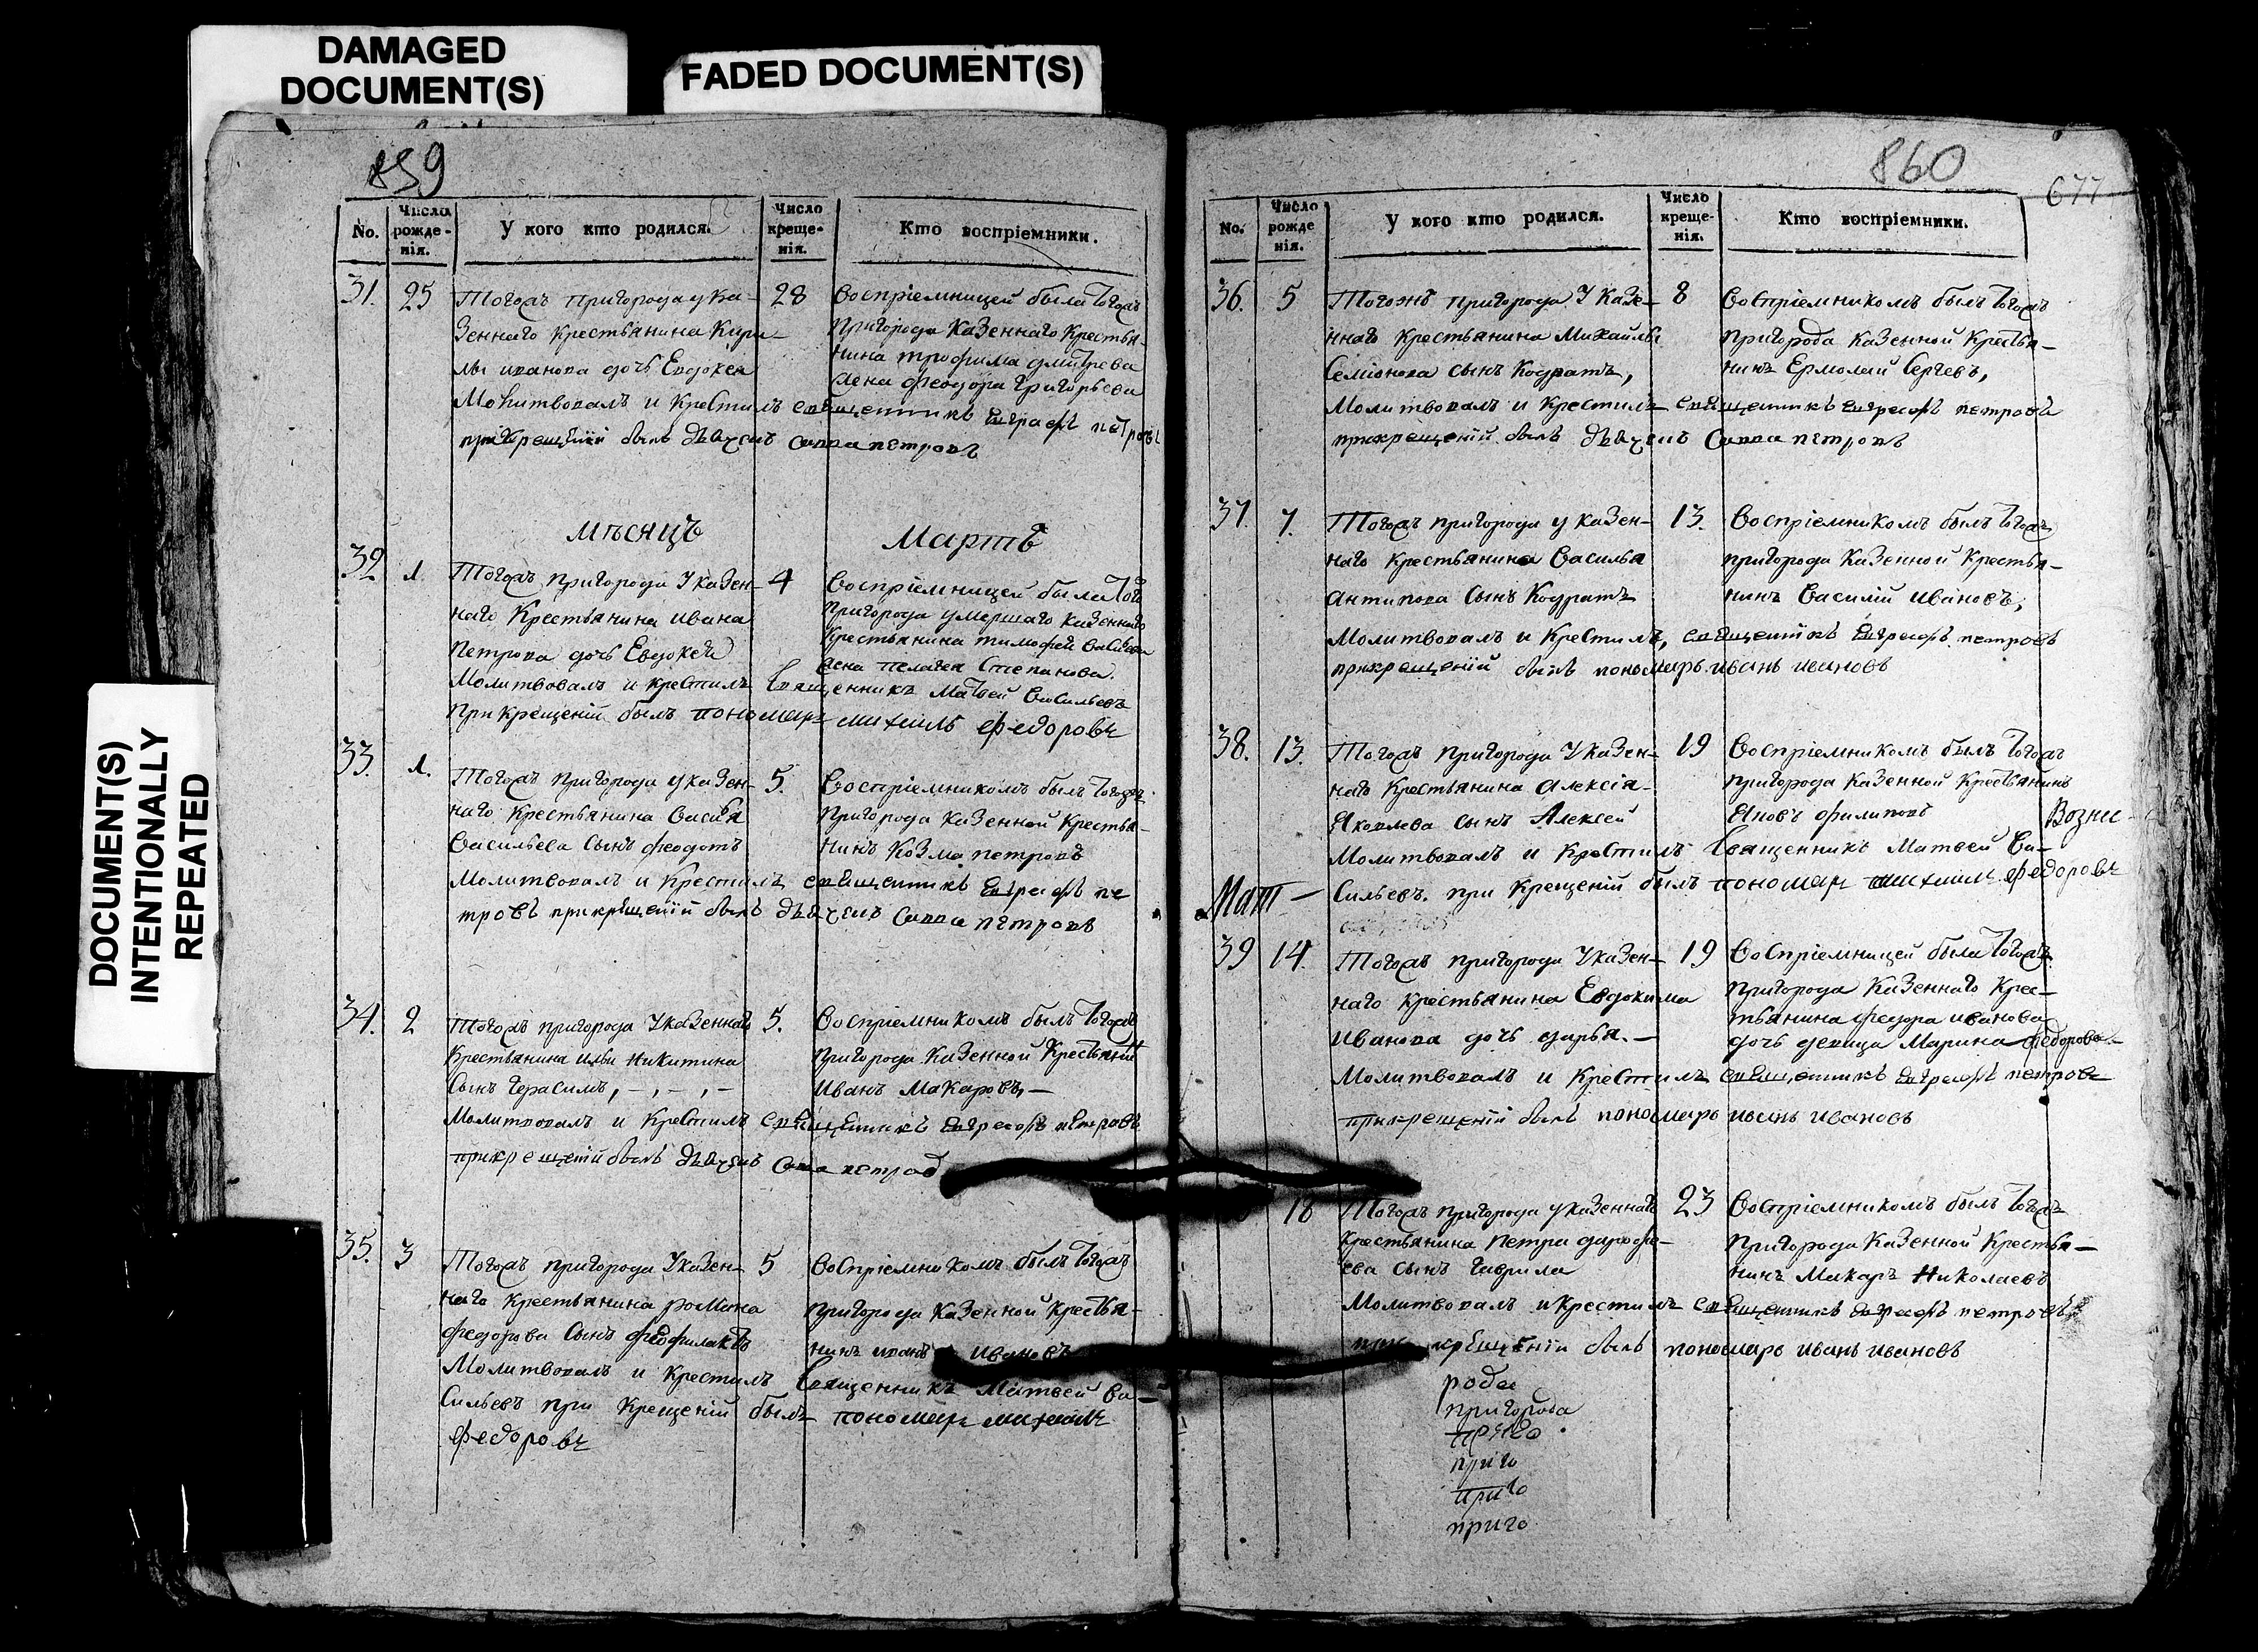 DAMAGED
DOCUMENT(S)
FADED DOCUMENT(S)
DOCUMENT(S)
INTENTIONALLY
REPEATED
859
No.
Число рожде-нія.
У кого кто родился.
Число креще-нія.
Кто воспріемники.
31. 25 28
Тогожъ пригорода у ка-
зеннаго крестьянина Кири-
лы иванова дочь Евдокея
Воспріемницей была тогожъ
пригорода казеннаго крестья-
нина трофима дмитрева
жена феодора григорьева
Молитвовалъ и крестилъ священникъ Евграфъ петровъ
прикрещеніи былъ дьячекъ Савва петровъ
мѣсяцъ Мартъ
32 1. 4
Тогожъ пригорода у казен-
наго крестьянина ивана
петрова дочь Евдокея
Воспріемницей была того
пригорода умершаго казеннаго
крестьянина тимофея
жена пелагея степанова.
Молитвовалъ и крестилъ Священникъ Матвей Васильевъ
При крещеніи былъ пономарь михаилъ федоровъ
33. 1. 5.
Тогожъ пригорода у казен-
наго крестьянина
Васильева сынъ феодотъ
Воспріемникомъ былъ тогожъ
пригорода казенной крестья-
нинъ Козма петровъ
Молитвовалъ и крестилъ священникъ Евграфъ пе
тровъ прикрещеніи былъ дьячекъ Савва петровъ
34. 2 5.
Тогожъ пригорода у казеннаго
крестьянина ильи никитина
сынъ герасимъ, -, -, -
Воспріемникомъ былъ тогожъ
пригорода казенной крестьянинъ
иванъ макаровъ, -
Молитвовалъ и крестилъ священникъ Евграфъ петровъ
прикрещеніи былъ дьячекъ Савва петров
35. 3 5
Тогожъ пригорода у казен-
наго крестьянина романа
федорова сынъ феофилактъ
Воспріемникомъ былъ тогожъ
пригорода казенной крестья-
нинъ иванъ ивановъ
Молитвовалъ и крестилъ Священникъ Матвей Ва-
сильевъ при крещеніи былъ пономарь михаилъ
федоровъ
860
677
No.
Число рожде нія.
У кого кто родился.
Число креще-нія.
Кто воспріемники.
36. 5 8
Тогожъ пригорода у казе-
ннаго крестьянина Михайлы
Семіонова сынъ Кодратъ,
Воспріемникомъ былъ тогожъ
пригорода казенной крестья-
нинъ Ермолай Сергеевъ,
Молитвовалъ и крестилъ священникъ Евграфъ петровъ
прикрещеніи былъ дьячекъ Савва петровъ
37. 7. 13.
Тогожъ пригорода у казен-
наго крестьянина Василья
антипова сынъ Кодратъ
Воспріемникомъ былъ тогожъ
пригорода казенной крестья-
нинъ Василій ивановъ,
Молитвовалъ и крестилъ, священникъ Евграфъ петровъ
прикрещеніи былъ пономарь иванъ ивановъ
38. 13. 19
Тогожъ пригорода у казен-
наго крестьянина алексія
Яковлева сынъ Алексей
Воспріемникомъ былъ тогожъ
пригорода казенной крестьянинъ
филиповъ
Вознес-
Молитвовалъ и крестилъ Священникъ Матвей Ва-
Мат -
сильевъ. при крещеніи былъ пономарь михаилъ федоровъ
39 14. 19
Тогожъ пригорода у казен-
наго крестьянина Евдокима
иванова дочь дарья. -
Воспріемницей была тогожъ
пригорода казеннаго крес-
тьянина федора иванова
дочь девица Марина федорова
Молитвовалъ и крестилъ священникъ Евграфъ петровъ
прикрещеніи былъ пономарь иванъ ивановъ
18 23
Тогожъ пригорода у казеннаго
крестьянина петра дорофе-
ева сынъ гаврила
Воспріемникомъ былъ тогожъ
пригорода казенной крестья-
нинъ макаръ николаевъ
Молитвовалъ и крестилъ священникъ Евграфъ петровъ
при крещеніи былъ пономарь иванъ ивановъ
рода
пригорода
приго
приго
приго